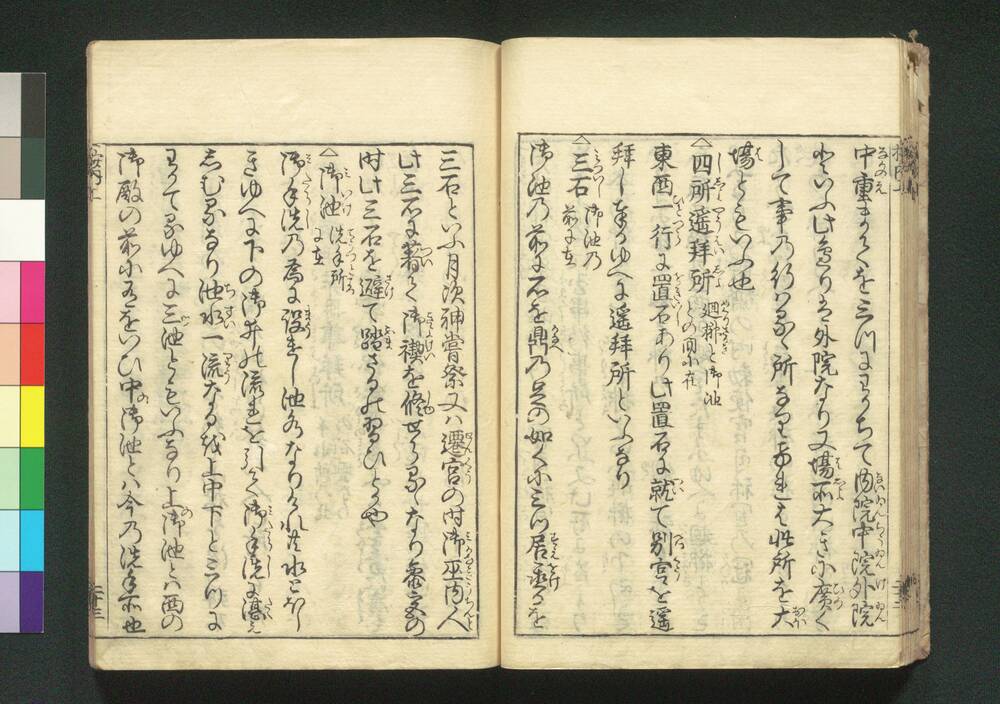 中重すべてを三つにわかちて内院中院外院
といふ此あたりは外院なり又場所大きに広く
して事の行はるゝ所なり是によりて此所を大
場ともいふ也
△四所遥拝所 廻榊と御池との間に在
東西一行に置石あり此置石に就て別宮を遥
拝し奉るゆへに遥拝所といふなり
△三石 御池の前に在
御池の前に石を鼎の足の如くに三つ居置るを
三石といふ月次神嘗祭又は遷宮の時御巫内人
此三石に着て御禊を修せらるゝなり参宮の
時此三石を避て踏さるの習ひとかや
△御池 洗手所に在
御手洗の為に設し池水なりけれ共水とぼし
きゆへに下の御井の流れを引て御手洗に湛へ
しむるなり池水一流なるを上中下と三つに
わくるゆへに三池ともいふなり上御池とは西の
御殿の前に有をいひ中御池とは今の洗手所也